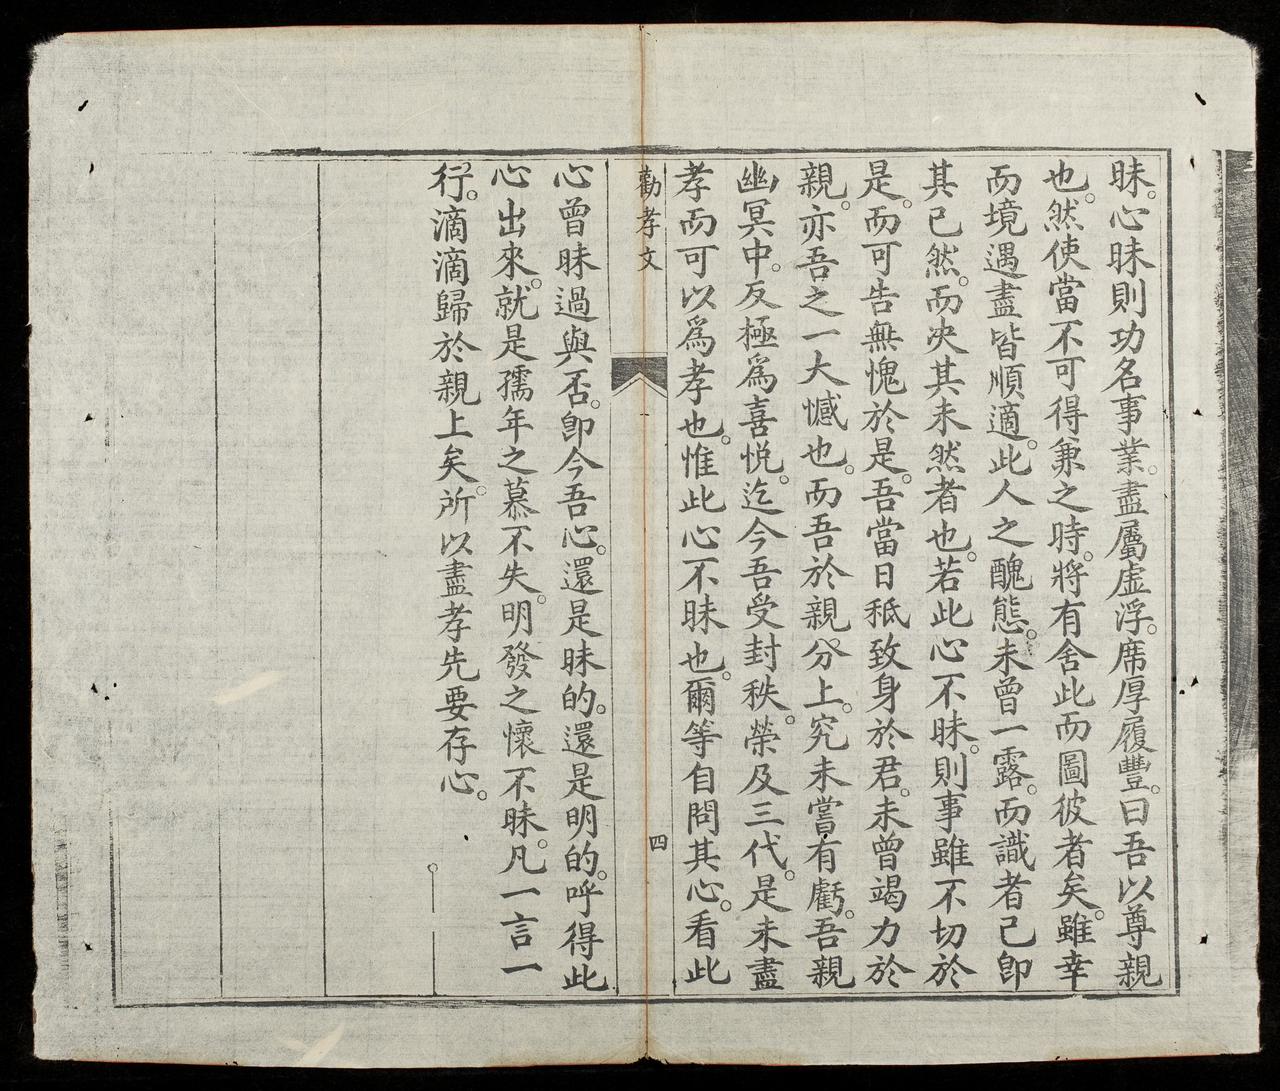 昧。心昧則功名事業。盡屬虛浮。席厚履豐。曰吾以尊親
也。然使當不可得兼之時。將有舍此而圖彼者矣。雖幸
而境遇盡皆順適。此人之醜態。未曾一露。而識者已卽
其已然。而决其未然者也。若此心不昧。則事雖不切於
是。而可告無愧於是。吾當日秪致身於君。未曾竭力於
親。亦吾之一大憾也。而吾於親。分上。究未嘗有虧。吾親
幽冥中。反極爲喜悦。迄今吾受封秩。榮及三代。是未盡
孝而可以爲孝也。惟此心不昧也。爾等自問其心。看此
勸孝文
四
心曾昧過與否。卽今吾心。還是昧的。還是明的。呼得此
心出來。就是孺年之慕不失。明發之懷不昧。凡一言一
行。滴滴歸於親上矣。所以盡孝先要存心。